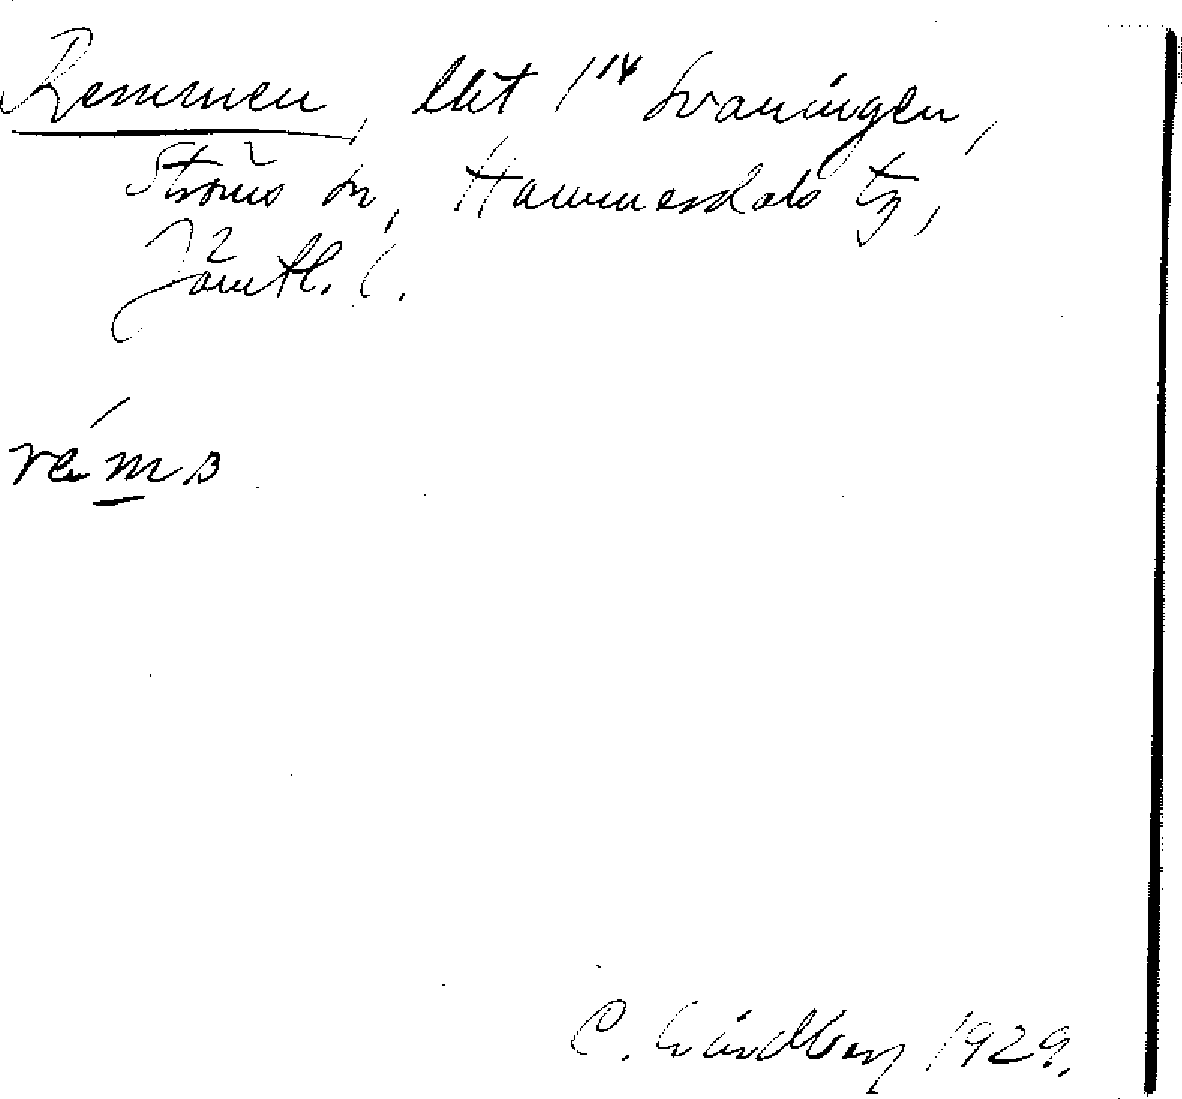 Remmen, lht 1¹⁴ Svaningen,
Ströms sn, Hammerdals tg,
Jämtl. l.
rém
C. Lindberg 1929.